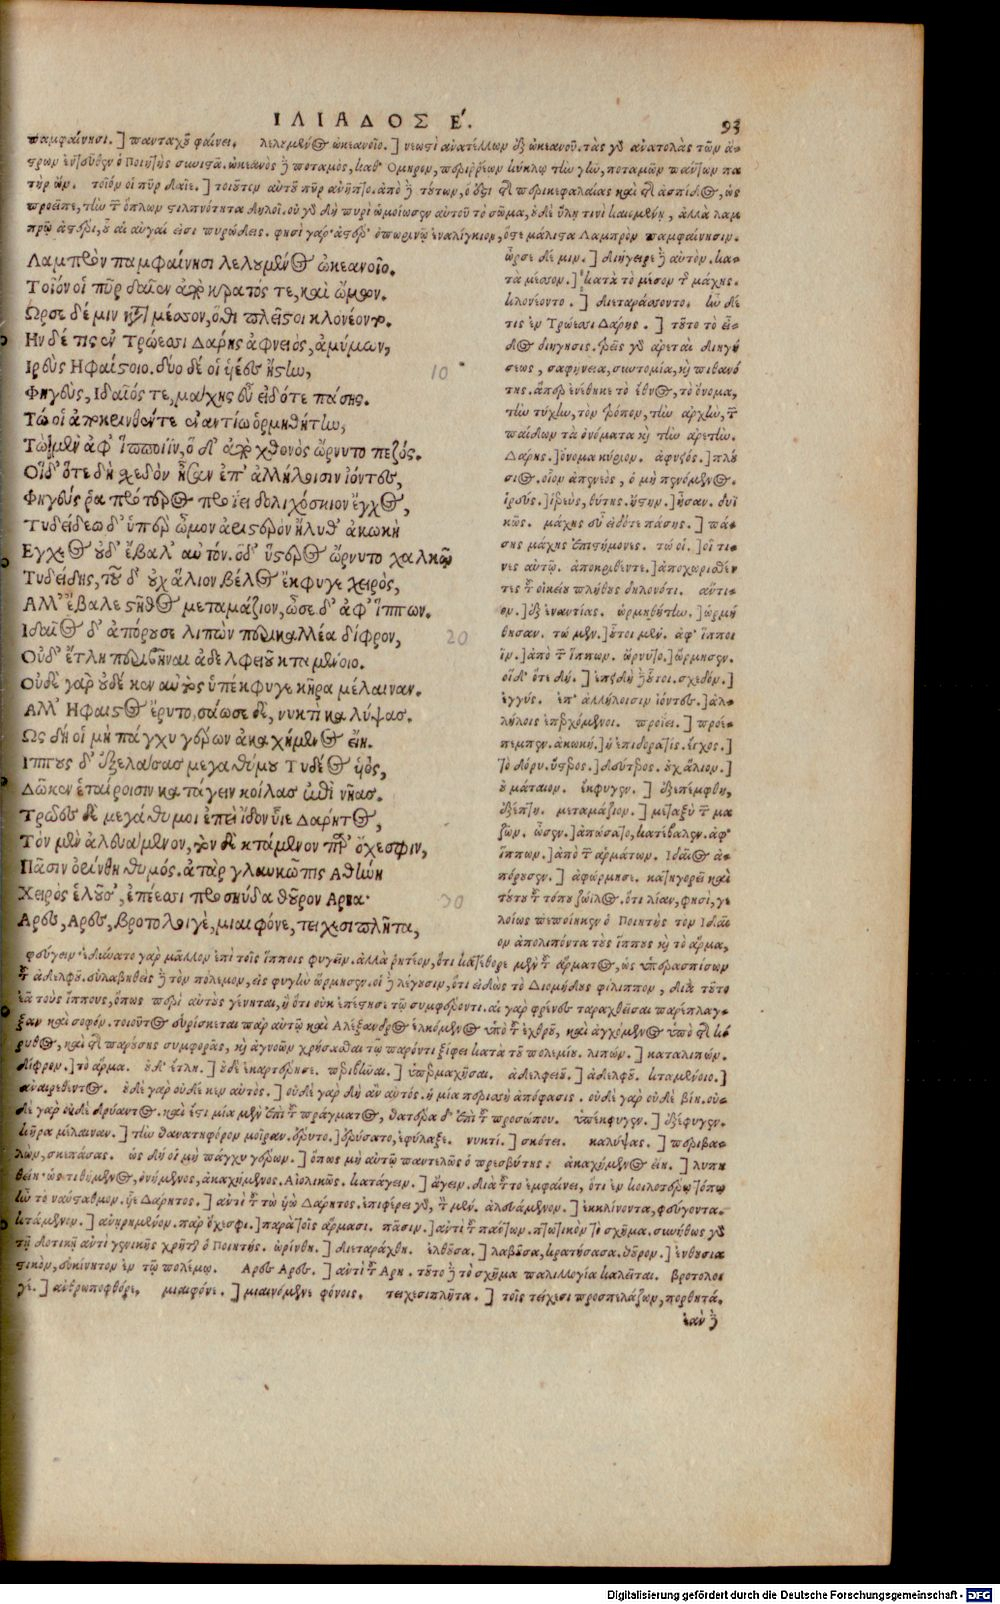 ΙΛΙΑΔΟΣ Ε. 93
παμφαίνησι.] πανταχοῦ φαίνει. λελουμένος ὠκεανοῖο.] νεωστὶ ἀνατέλλων ἐξ ὠκεανοῦ. τὰς γὰρ ἀνατολὰς τῶν ἀ-
στρων ἐντεῦθεν ὁ Ποιητὴς συνιστᾷ. ὠκεανὸς δὲ ποταμὸς, καθ' Ὅμηρον, περιῤῥέων κύκλῳ τὴν γῆν, ποταμῶν πάντων πα
τὴρ ὤν. τοῖόν οἱ πῦρ δαῖε.] τοιοῦτον αὐτοῦ πῦρ ἀνῆπτο. ἀπὸ δὲ τούτων, ὅ ἐστι τῆς περικεφαλαίας καὶ τῆς ἀσπίδος, ὡς
προεῖπε, τὴν τῶν ὅπλων στιλπνότητα δηλοῖ. οὐ γὰρ δὴ πυρὶ ὡμοίωσεν αὐτοῦ τὸ σῶμα, οὐδὲ ὕλῃ τινὶ καιομένῃ, ἀλλὰ λαμ
πρῷ ἀστέρι, οὗ αἱ αὐγαί εἰσι πυρώδεις. φησὶ γάρ· ἀστέρ' ὀπωρινῷ ἐναλίγκιον, ὅστε μάλιστα Λαμπρὸν παμφαίνησιν.
Λαμπρὸν παμφαίνησι λελουμένος ὠκεανοῖο.
Τοῖόν οἱ πῦρ δαῖεν ἀπὸ κρατός τε, καὶ ὤμων.
Ὦρσε δέ μιν κατὰ μέσσον, ὅθι πλεῖστοι κλονέοντο.
Ην δέ τις ἐν Τρώεσσι Δάρης ἀφνειὸς, ἀμύμων,
Ιρεὺς Ηφαίστοιο. δύο δέ οἱ υἱέες ἤστην, 10
Φηγεὺς, Ιδαῖός τε, μάχης εὖ εἰδότε πάσης.
Τώ οἱ ἀποκρινθέντε ἐναντίω ὁρμηθήτην,
Τὼ μὲν ἀφ' ἵπποιϊν, ὁ δ' ἀπὸ χθονὸς ὤρνυτο πεζός.
Οἱ δ' ὅτε δὴ σχεδὸν ἦσαν ἐπ' ἀλλήλοισιν ἰόντες,
Φηγεύς ῥα πρότερος προΐει δολιχόσκιον ἔγχος,
Τυδείδεω δ' ὑπὲρ ὦμον ἀριστερὸν ἤλυθ' ἀκωκὴ
Εγχεος οὐδ' ἔβαλ' αὐτόν. ὁ δ' ὕστερος ὤρνυτο χαλκῷ
Τυδείδης, τοῦ δ' οὐχ ἅλιον βέλος ἔκφυγε χειρὸς,
Αλλ' ἔβαλε στῆθος μεταμάζιον, ὦσε δ' ἀφ' ἵππων.
Ιδαῖος δ' ἀπόρουσε λιπὼν περικαλλέα δίφρον, 20
Οὐδ' ἔτλη περιβῆναι ἀδελφειοῦ κταμένοιο.
Οὐδὲ γὰρ οὐδέ κεν αὐτὸς ὑπέκφυγε κῆρα μέλαιναν.
Αλλ' Ηφαιστος ἔρυτο, σάωσε δὲ, νυκτὶ καλύψας.
Ως δή οἱ μὴ πάγχυ γέρων ἀκαχήμενος εἴη.
Ιππους δ' ἐξελάσας μεγαθύμου Τυδέος υἱὸς,
Δῶκεν ἑταίροισιν κατάγειν κοίλας ἐπὶ νῆας.
Τρῶες δὲ μεγάθυμοι ἐπεὶ ἴδον υἷε Δάρητος,
Τὸν μὲν ἀλευάμενον, τὸν δὲ κτάμενον παρ' ὄχεσφιν,
Πᾶσιν ὀρίνθη θυμός. ἀτὰρ γλαυκῶπις Αθήνη
Χειρὸς ἑλοῦσ', ἐπέεσσι προσηύδα θοῦρον Αρηα· 30
Αρες, Αρες, βροτολοιγὲ, μιαιφόνε, τειχεσιπλῆτα,
ὦρσε δέ μιν.] διήγειρε δὲ αὐτὸν. κα-
τὰ μέσσον.] κατὰ τὸ μέσον τῆς μάχης.
κλονέοντο.] διεταράσσοντο. ἦν δέ
τις ἐν Τρώεσσι Δάρης.] τοῦτο τὸ εἶ-
δος διηγήσεως. τρεῖς γὰρ ἀρεταὶ διηγή
σεως, σαφήνεια, συντομία, καὶ πιθανό
της. ἅπερ ἐνέθηκε τὸ ἔθνος, τὸ ὄνομα,
τὴν τύχην, τὸν τρόπον, τὴν ἀρχὴν, τῶν
παίδων τὰ ὀνόματα καὶ τὴν ἀρετήν.
Δάρης.] ὄνομα κύριον. ἀφνειός.] πλού
σιος. οἷον ἀπενεὸς, ὁ μὴ πενόμενος.
ἱρεύς.] ἱερεὺς, θύτης. ἤστην.] ἦσαν. δυϊ
κῶς. μάχης εὖ εἰδότε πάσης.] πά-
σης μάχης ἐπιστήμονες. τώ οἱ.] οἵ τι-
νες αὐτῷ. ἀποκρινθέντε.] ἀποχωρισθέν
τες τοῦ οἰκείου πλήθους δηλονότι. ἀντί-
ον.] ἐξ ἐναντίας. ὡρμηθήτην.] ὡρμή
θησαν. τὼ μέν.] οὗτοι μὲν. ἀφ' ἵπποι
ϊν.] ἀπὸ τῶν ἵππων. ὤρνυτο.] ὥρμησεν.
οἱ δ' ὅτε δή.] ἐπειδὴ δὲ οὗτοι. σχεδόν.]
ἐγγύς. ἐπ' ἀλλήλοισιν ἰόντες.] ἀλ-
λήλοις ἐπερχόμενοι. προΐει.] προέ-
πεμπεν. ἀκωκή.] ἡ ἐπιδορατίς. ἔγχος.]
τὸ δόρυ. ὕστερος.] δεύτερος. οὐχ ἅλιον.]
οὐ μάταιον. ἔκφυγεν.] ἐξεπέμφθη,
ἐξέπτη. μεταμάζιον.] μεταξὺ τῶν μα
ζῶν. ὦσεν.] ἀπώσατο, κατέβαλεν. ἀφ'
ἵππων.] ἀπὸ τῶν ἁρμάτων. Ιδαῖος ἀ-
πόρουσεν.] ἀφώρμησε. κατηγορεῖ καὶ
τούτου τοῦ τόπου ζωΐλος, ὅτι λίαν, φησὶ, γε
λοίως πεποίηκεν ὁ Ποιητὴς τὸν Ιδαῖ-
ον ἀπολιπόντα τοὺς ἵππους καὶ τὸ ἅρμα,
φεύγειν. ἐδύνατο γὰρ μᾶλλον ἐπὶ τοῖς ἵπποις φυγεῖν. ἀλλὰ ῥητέον, ὅτι κατέθορε μὲν τοῦ ἅρματος, ὡς ὑπερασπίσων
τοῦ ἀδελφοῦ. εὐλαβηθεὶς δὲ τὸν πόλεμον, εἰς φυγὴν ὥρμησεν. οἱ δὲ λέγουσιν, ὅτι εἰδὼς τὸ Διομήδους φίλιππον, διὰ τοῦτο
ἐᾷ τοὺς ἵππους, ὅπως περὶ αὐτοὺς γένηται, ἢ ὅτι οὐκ ἐπέστησε τῷ συμφέροντι. αἱ γὰρ φρένες ταραχθεῖσαι παρέπλαγ-
ξαν καὶ σοφόν. τοιοῦτος εὑρίσκεται παρ' αὐτῷ καὶ Αλέξανδρος ἑλκόμενος ὑπὸ τοῦ ἐχθροῦ, καὶ ἀγχόμενος ὑπὸ τῆς κό
ρυθος, καὶ τῆς παρούσης συμφορᾶς, καὶ ἀγνοῶν χρήσασθαι τῷ παρόντι ξίφει κατὰ τοῦ πολεμίου. λιπών.] καταλιπών.
δίφρον.] τὸ ἅρμα. οὐδ' ἔτλη.] οὐδὲ ἐκαρτέρησε. περιβῆναι.] ὑπερμαχῆσαι. ἀδελφειοῦ.] ἀδελφοῦ. κταμένοιο.]
ἀναιρεθέντος. οὐδὲ γὰρ οὐδέ κεν αὐτός.] οὐδὲ γὰρ δὴ ἂν αὐτός. ἡ μία περισσὴ ἀπόφασις. οὐδὲ γὰρ οὐδὲ βίη. οὐ-
δὲ γὰρ οὐδὲ δρύαντος. καὶ ἔστι μία μὲν ἐπὶ τοῦ πράγματος, θατέρα δ' ἐπὶ τοῦ προσώπου. ὑπέκφυγεν.] ἐξέφυγεν.
κῆρα μέλαιναν.] τὴν θανατηφόρον μοῖραν. ἔρυτο.] ἐρύσατο, ἐφύλαξε. νυκτί.] σκότει. καλύψας.] περιβα-
λὼν, σκεπάσας. ὡς δή οἱ μὴ πάγχυ γέρων.] ὅπως μὴ αὐτῷ παντελῶς ὁ πρεσβύτης. ἀκαχήμενος εἴη.] λυπη
θείη· ὡς τιθήμενος, ὀνήμενος, ἀκαχήμενος. Αἰολικῶς. κατάγειν.] ἄγειν. διὰ τούτου ἐμφαίνει, ὅτι ἐν κοιλοτέρῳ τόπῳ
ἦν τὸ ναύσταθμον. υἷε Δάρητος.] ἀντὶ τοῦ τὼ υἱὼ Δάρητος. ἐπιφέρει γὰρ, τὸν μὲν. ἀλευάμενον.] ἐκκλίνοντα, φεύγοντα.
κτάμενον.] ἀνῃρημένον. παρ' ὄχεσφι.] παρὰ τοῖς ἅρμασι. πᾶσιν.] ἀντὶ τοῦ πάντων. πτωτικὸν τὸ σχῆμα. συνήθως γὰρ
τῇ δοτικῇ ἀντὶ γενικῆς χρῆται ὁ Ποιητής. ὠρίνθη.] διεταράχθη. ἑλοῦσα.] λαβοῦσα, κρατήσασα. θοῦρον.] ἐνθουσια
στικὸν, εὐκίνητον ἐν τῷ πολέμῳ. Αρες Αρες.] ἀντὶ τοῦ Αρη. τοῦτο δὲ τὸ σχῆμα παλιλλογία καλεῖται. βροτολοι
γέ.] ἀνθρωποφθόρε, μιαιφόνε.] μιαινόμενε φόνοις. τειχεσιπλῆτα.] τοῖς τείχεσι προσπελάζων, πορθητά.
ἐὰν δὲ
Digitalisierung gefördert durch die Deutsche Forschungsgemeinschaft - DFG